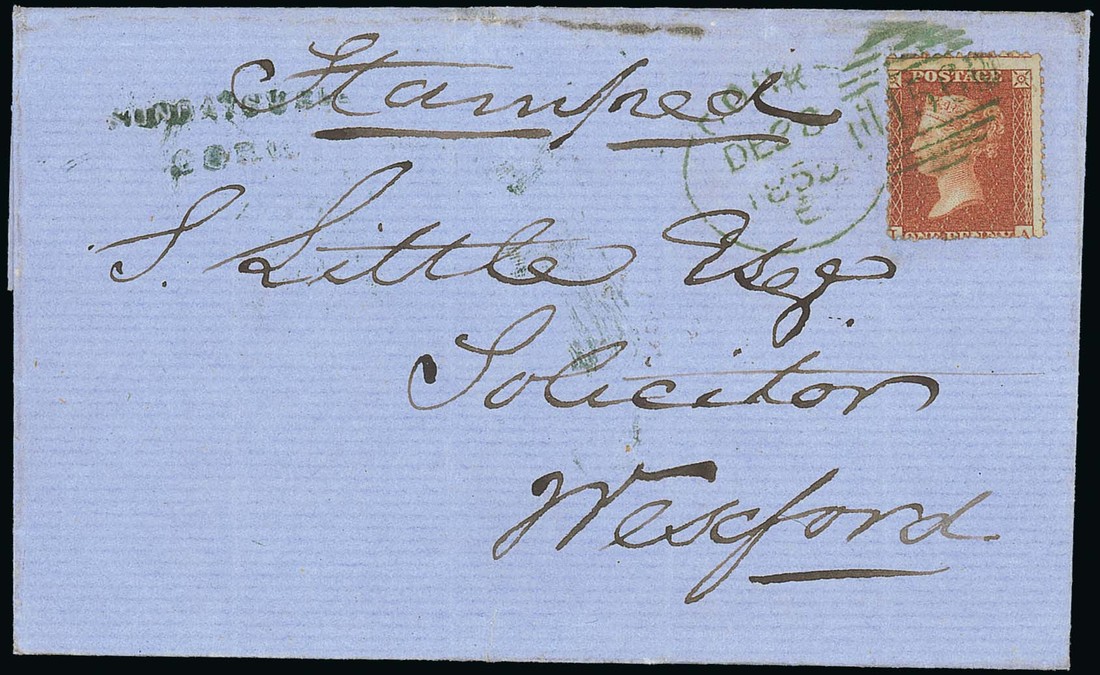 Stamped
SUNDAY'S WELL
CORK
CORK
DE 28
1855
E
POSTAGE
ONE PENNY A
S. Little Esqr
Solicitor
Wexford